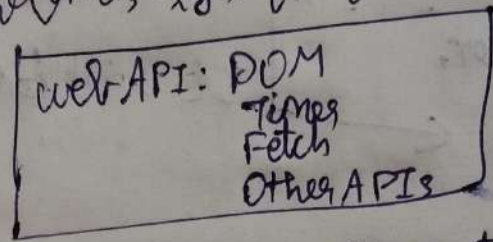 web API: DOM
Timer
Fetch
Other APIs